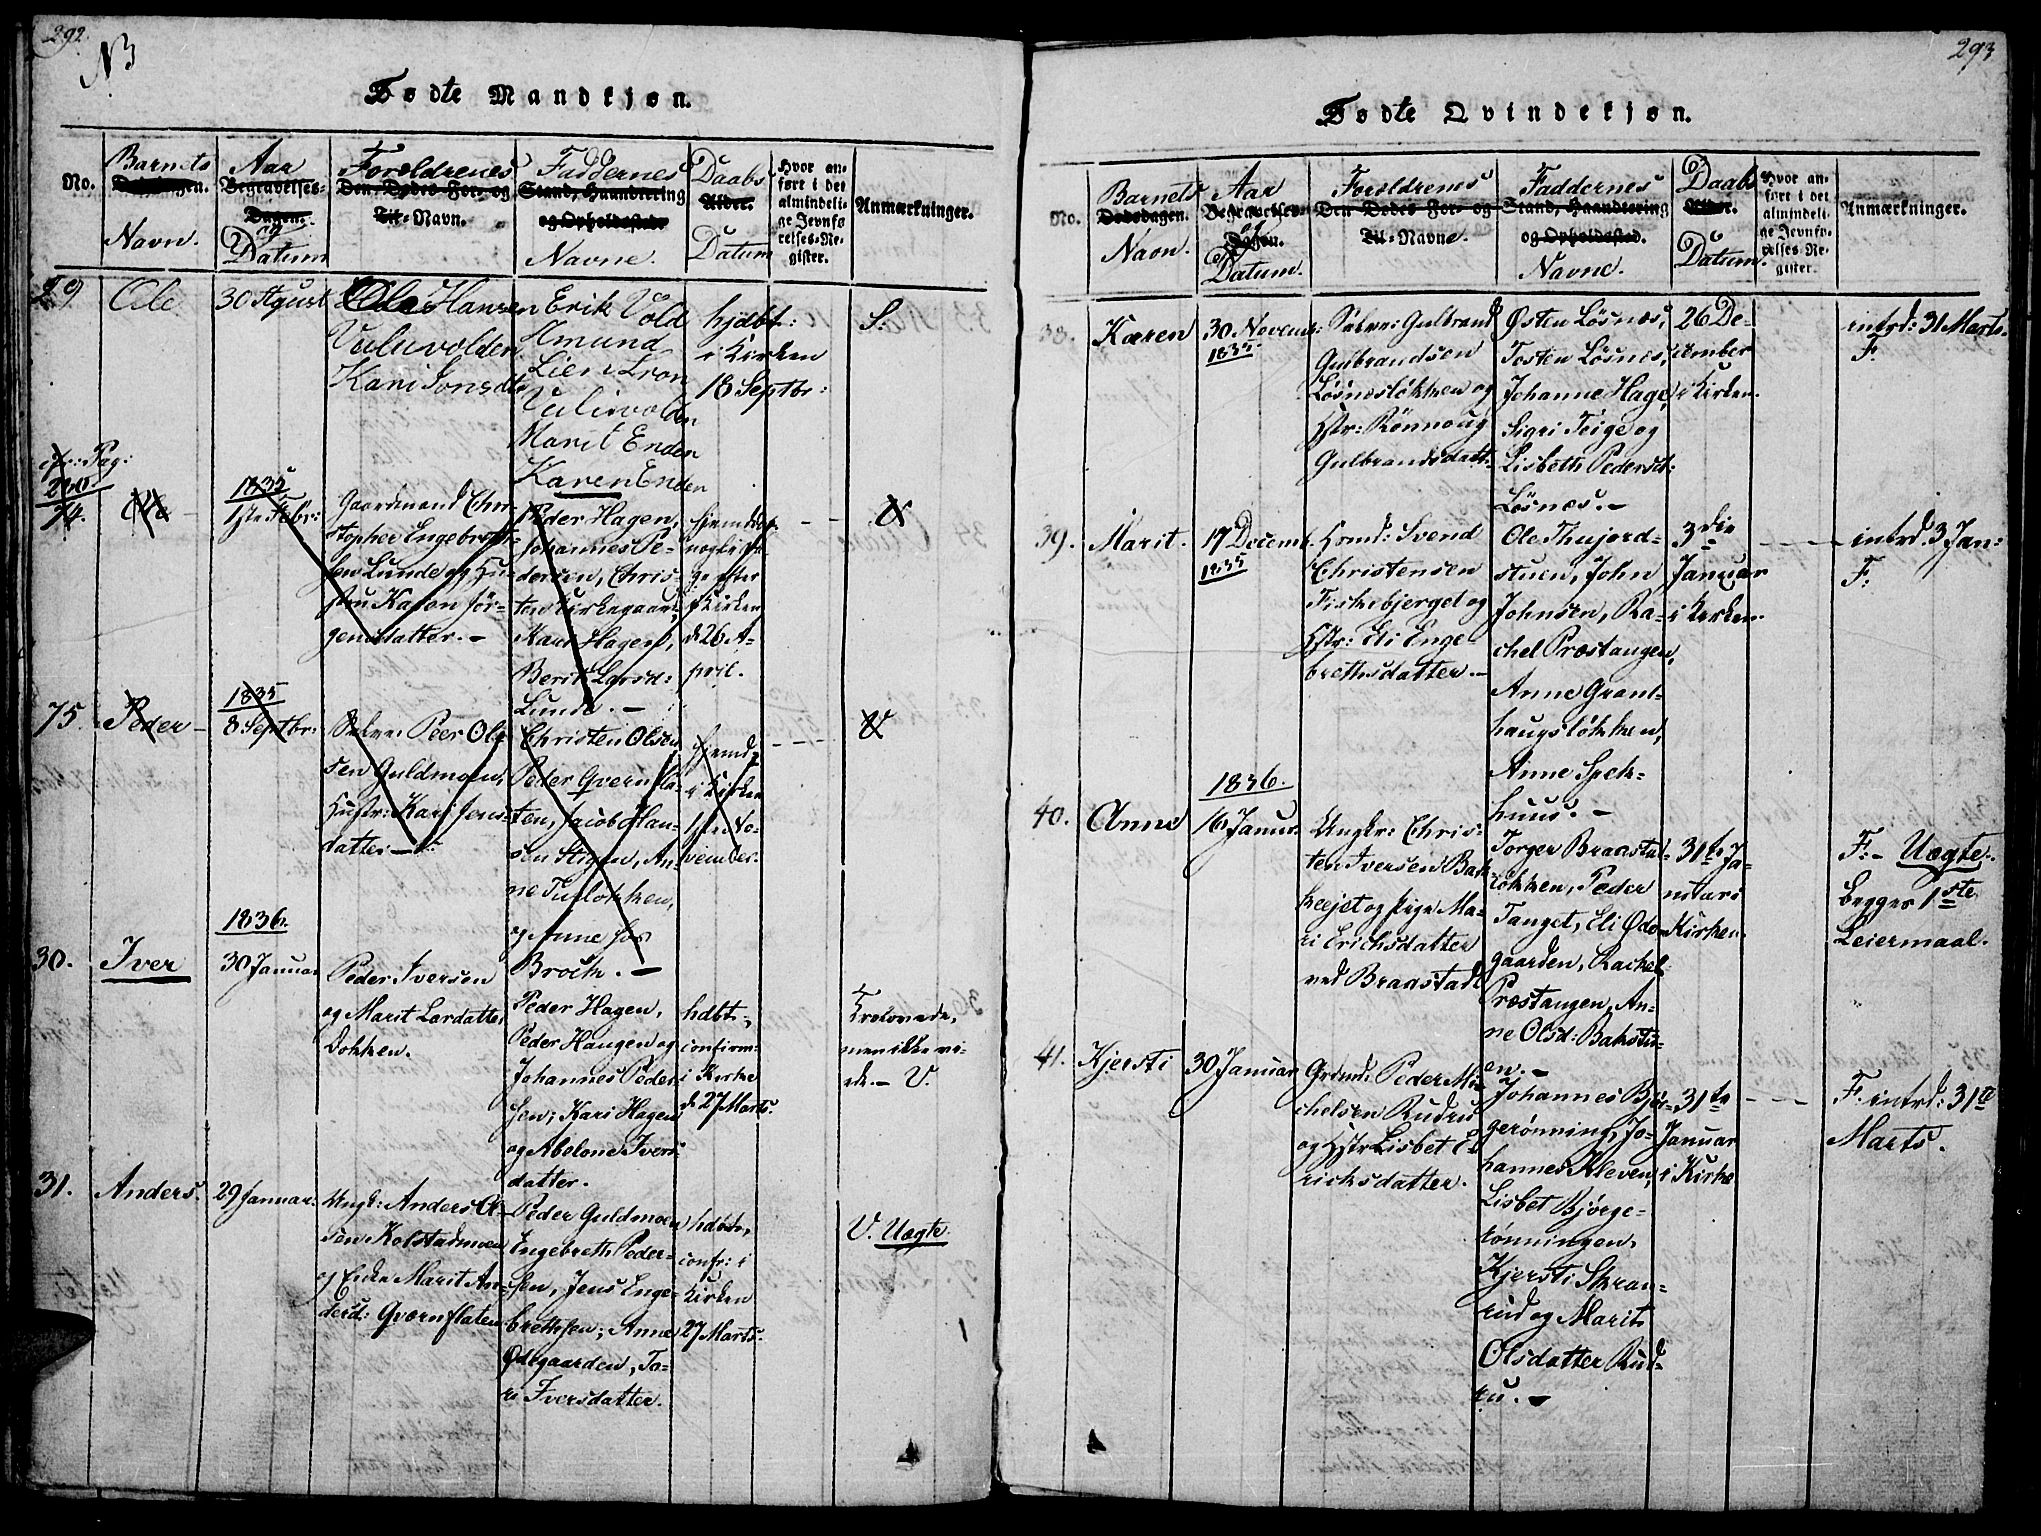 292.
N3
Fødte Mandkjøn.
No.
Barnets
Navn.
Aar
Begravelses-
Dagen.
og
Datum
Forældrenes
Den Dødes For- og
Til-Navn.
Faddernes
Stand, Haandtering
og Opholdssted
Navne.
Daabs
Alder.
Datum
Hvor an-
ført i det
almindeli-
ge Jevnfø
relses-Re-
gister.
Anmærkninger.
29
Ole
30 August
Ole Hansen
Vuluvolden
Kari Jonsdtr
Erik Vold
Amund
Lien Tron
Vulivolden
Marit Enden
Karen Enden
hjdbt:
i Kirken
18 Septbr:
S:
cfr: Pag:
74.
Ole
1835
1ste Febr:
Gaardmand Chri-
stopher Engebreth-
sen Lunde og Hu-
stru Karen Jör-
gensdatter. -
Peder Hagen,
Johannes Pe-
dersen, Chris-
ten Kirkegaard,
Kari Hagen,
Berit Larsd:
Lunde. -
i Kirken
d 26 A-
pril.
V
75.
Peder -
1835
8 Septbr:
Selve: Peer Ol-
sen Guldmoen,
Hustr: Kari Jens-
datter -
Christen Olsen
Peder Qvernfla-
ten, Jacob Han-
sen Stigen, An-
ne Tuslökken,
og Anne hos
Broch. -
hjemd:
i Kirken
1ste No-
vember.
V
30.
Iver
1836.
30 Januar
Peder Iversen
og Marit Lardatter
Dokken.
Peder Hagen,
Peder Haugen og
Johannes Peder-
sen; Kari Hagen
og Abelone Ivers-
datter.
hdbt:,
confirm:
i Kirke
d 27 Marts.
Trolovede,
men ikke vi-
ede. - V.
31.
Anders.
29 Januar.
Ungk: Anders Ol-
sen Kolstadmoen
og Enke Marit An-
dersd: Qvernflaten
Peder Guldmoen
Engebreth Peder-
sen, Jens Enge-
brethsen; Anne
Ödegaarden, To-
re Iversdatter.
hdöbt,
confr: i
Kirken
27 Marts.
V. Uægte.
293
Fødte Qvindekjøn.
No.
Barnets
Dødsdagen.
Navn.
Aar
Begravelses-
Dagen.
og
Datum.
Forældrenes
Den Dødes For- og
Til-Navne.
Faddernes
Stand, Haandtering
og Opholdssted.
Navne.
Daabs
Alder.
Datum.
Hvor an-
ført i det
almindeli-
ge Jevnfø-
relses-Re-
gister.
Anmærkninger.
38.
Karen
30 Novemb:
1835.
Selve: Gulbrand
Gulbrandsen
Løsneslökken og
Hstr: Rönnoug
Gulbrandsdatt:
Østen Løsnes,
Tosten Løsnes,
Johanne Hage,
Sigri Teige og
Lisbeth Pedersd:
Løsnes. -
26 De-
cember
i Kirken.
intrd: 31 Marts.
F.
39.
Marit.
17 Decemb.
1835
Husmd: Svend
Christensen
Fiskebjerget og
Hstr: Eli Enge-
brethsdatter. -
Ole Thujord-
stuen, John
Johnsen, Ra-
chel Præstangen,
Anne Grant-
haugslökken,
Anne Spek-
huus. -
3die
Januar
i Kirken.
intrd. 3 Jan:
F.
40.
Anne
1836.
16 Januar.
Ungkr: Chris-
ten Iversen Bak-
keejet og pige Ma-
ri Erichsdatter
ved Braastad
Torger Braastad-
lökken, Peder
Tanget, Eli Øde-
gaarden, Rachel
Præstangen, An-
ne Olsd: Bakstu-
en. -
31te Ja-
nuar i
Kirken.
F:- Uægte.
begges 1ste
Leiermaal.
41.
Kjersti
30 Januar
Grdmd: Peder Mi-
chelsen Rudru
og Hstr Lisbet E-
richsdatter.
Johannes Bjør-
gerønning, Jo-
hannes Kleven,
Lisbet Bjørge-
rønningen,
Kjersti Skran-
rud og Marit
Olsdatter Rud-
ru. -
31te
Januar
i Kirke
F. intrd: 31te
Marts.